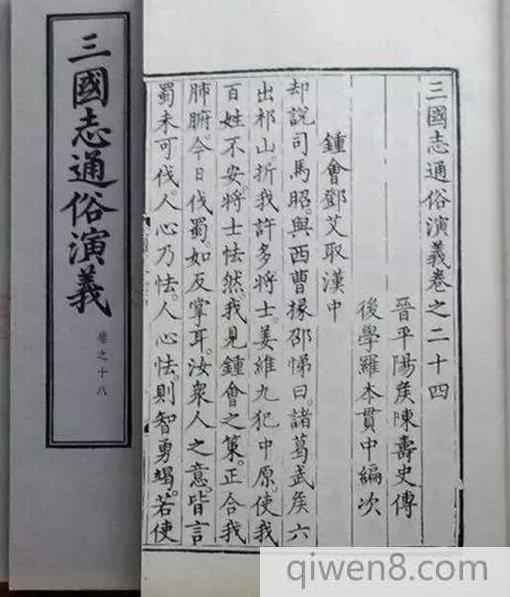 三國志通俗演義
卷之十八
三國志通俗演義卷之二十四
晉平陽侯陳壽史傳
後學羅本貫中編次
鍾會鄧艾取漢中
却說司馬昭與西曹掾邵悌曰諸葛武侯六
出祁山折我許多將士姜維九犯中原使我
百姓不安將士怯然我見鍾會之策正合我
肺腑今日伐蜀如反掌耳汝衆人之意皆言
蜀未可伐人心乃怯人心怯則智勇竭若使
qiwen8.com